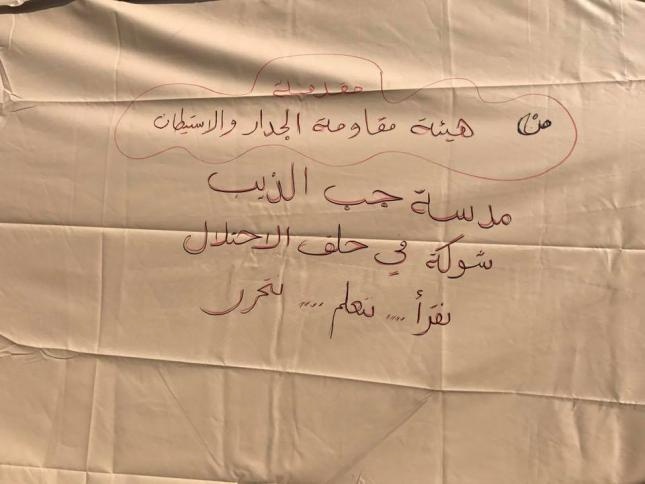 مقدمة
من هيئة مقاومة الجدار والاستيطان
مدسة جب الذيب
شوكة في حلق الاحتلال
نقرأ .... نتعلم .... نتحرر